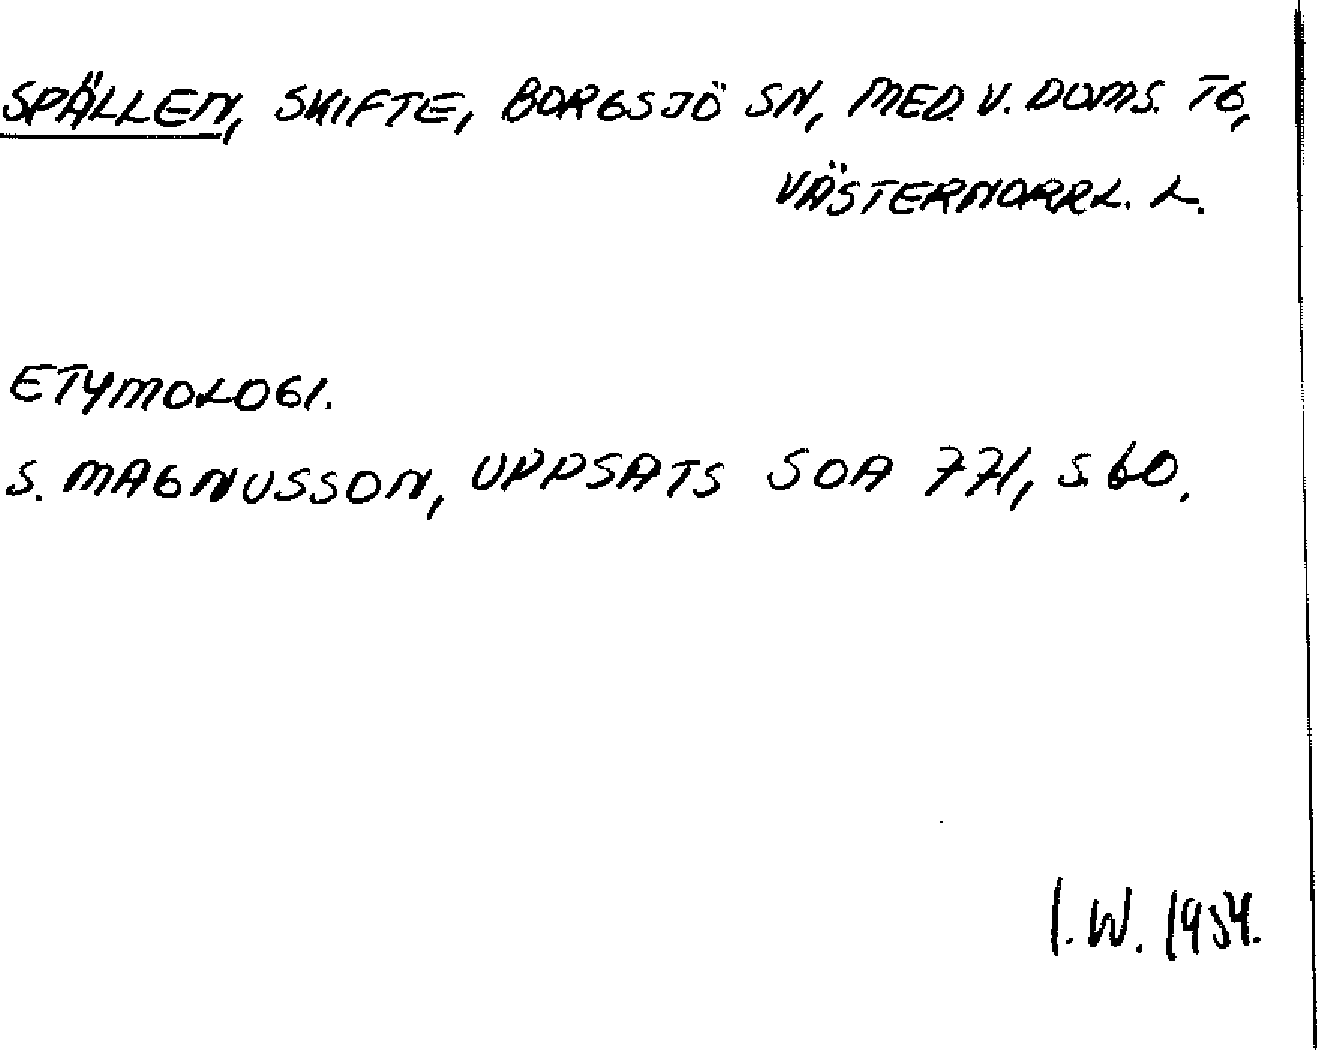 SPÄLLEN, SKIFTE, BORGSJÖ SN, MED. V. DOMS. TG,
VÄSTERNORRL. L.
ETYMOLOGI.
S. MAGNUSSON, UPPSATS SOA 771, S 60.
I. W. 1954.